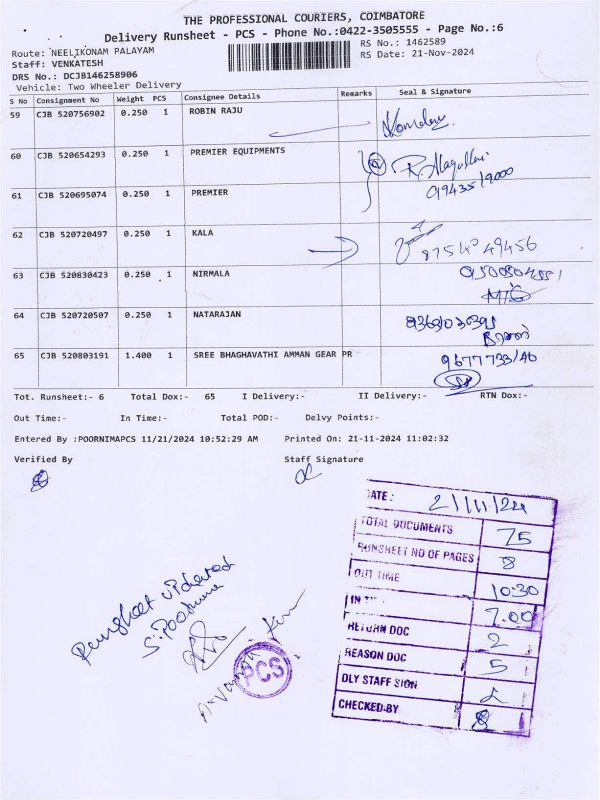 THE PROFESSIONAL COURIERS, COIMBATORE
Delivery Runsheet - PCS - Phone No.:0422-3505555 - Page No.:6
Route: NEELIKONAM PALAYAM
RS No.: 1462589
Staff: VENKATESH
RS Date: 21-Nov-2024
DRS No.: DCJB146258906
Vehicle: Two Wheeler Delivery
S No Consignment No Weight PCS Consignee Details Remarks Seal & Signature
59 CJB 520756902 0.250 1 ROBIN RAJU
60 CJB 520654293 0.250 1 PREMIER EQUIPMENTS
61 CJB 520695074 0.250 1 PREMIER
62 CJB 520720497 0.250 1 KALA
63 CJB 520830423 0.250 1 NIRMALA
64 CJB 520720507 0.250 1 NATARAJAN
65 CJB 520803191 1.400 1 SREE BHAGHAVATHI AMMAN GEAR PR
Tot. Runsheet:- 6 Total Dox:- 65 I Delivery:- II Delivery:- RTN Dox:-
Out Time:- In Time:- Total POD:- Delvy Points:-
Entered By :POORNIMAPCS 11/21/2024 10:52:29 AM Printed On: 21-11-2024 11:02:32
Verified By Staff Signature
DATE: 21/11/24
TOTAL DOCUMENTS 75
RUNSHEET NO OF PAGES 8
OUT TIME 10:30
IN TIME 7.00
RETURN DOC 2
REASON DOC 5
DLY STAFF SIGN
CHECKED BY
Runsheet updated
S. Poornima
PCS